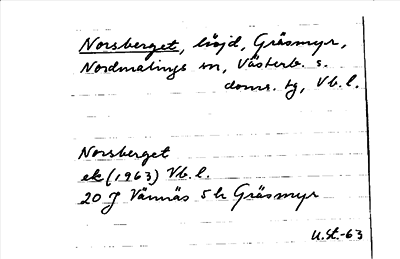 Norsberget, höjd, Gräsmyr,
Nordmalings sn, Västerb. s.
doms. tg, Vb. l.
Norsberget
ek (1963) Vb. l.
20 J Vännäs 5 h Gräsmyr
U.St.-63